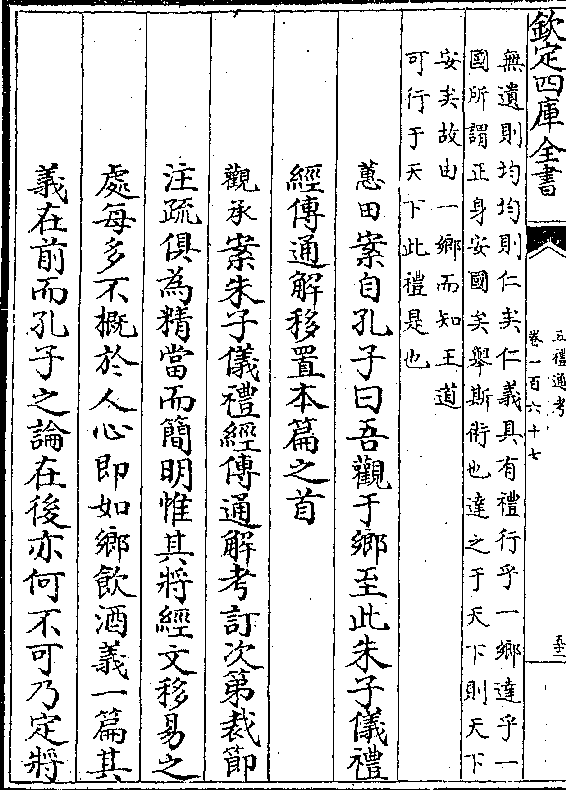 欽定四庫全書
五禮通考
卷一百六十七
無遺則均均則仁矣仁義具有禮行乎一鄉達乎一
國所謂正身安國矣舉斯術也達之于天下則天下
安矣故由一鄉而知王道
可行于天下此禮是也
蕙田案自孔子曰吾觀于鄉至此朱子儀禮
經傳通解移置本篇之首
觀承案朱子儀禮經傳通解考訂次第裁節
注疏俱為精當而簡明惟其將經文移易之
處每多不概於人心即如鄉飲酒義一篇其
義在前而孔子之論在後亦何不可乃定將